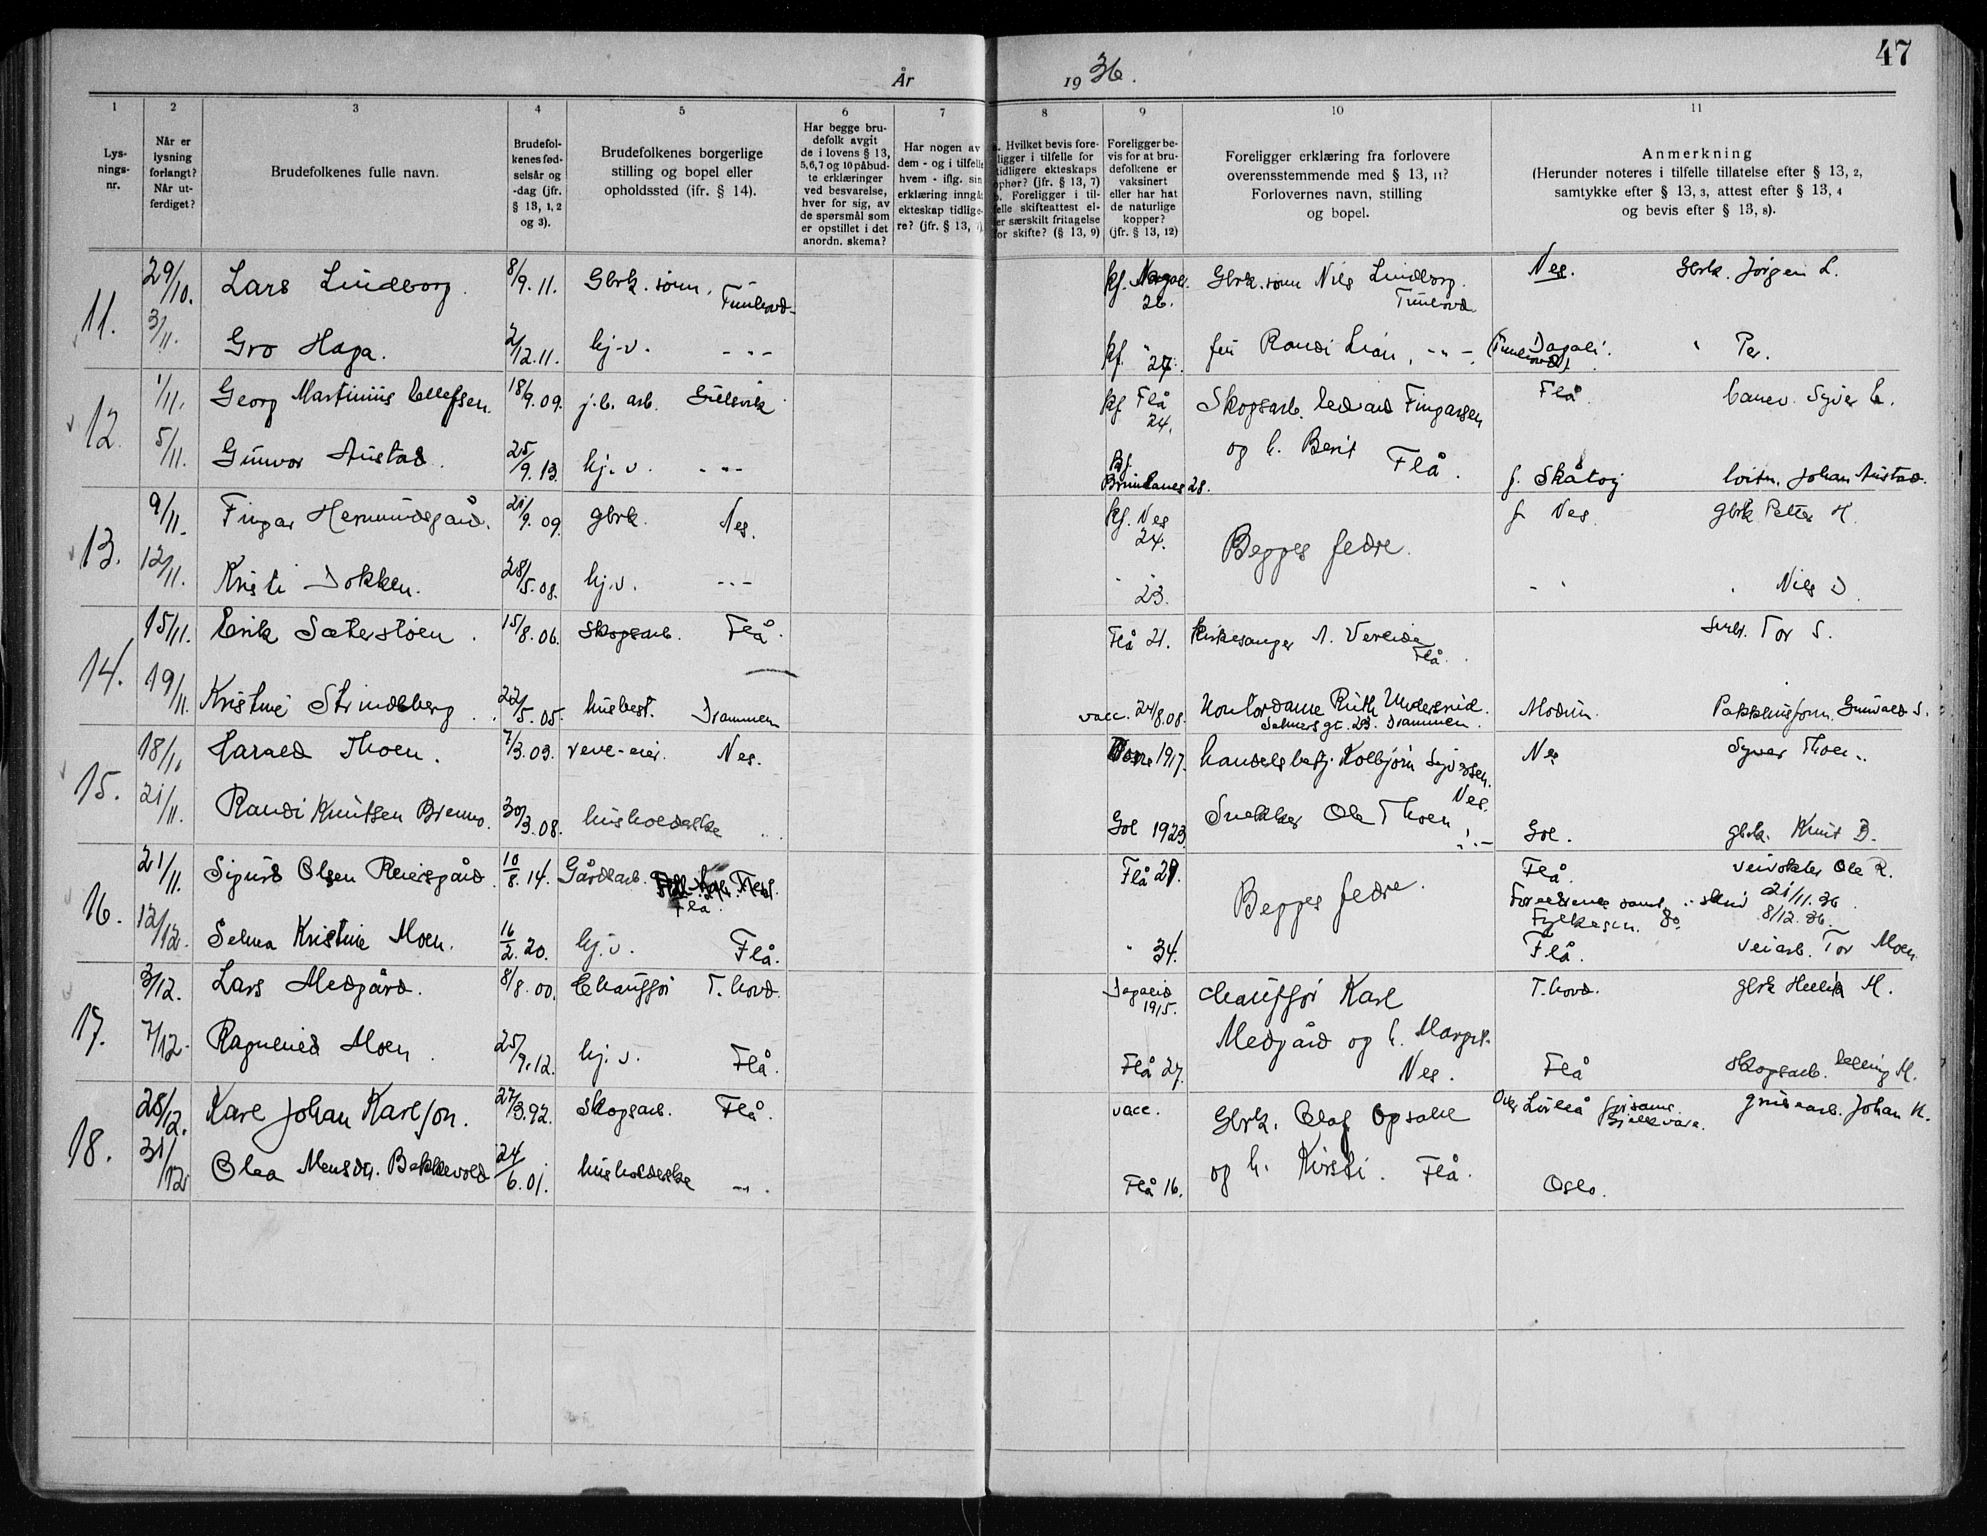 47
År 1936.
1 2 3 4 5 6 7 8 9 10 11
Lysningsnr.
Når er lysning forlangt? Når utferdiget?
Brudefolkenes fulle navn.
Brudefolkenes fødselsår og -dag (jfr. § 13, 1, 2 og 3).
Brudefolkenes borgerlige stilling og bopel eller opholdssted (ifr. § 14).
Har begge brudefolk avgit de i lovens § 13, 5, 6, 7 og 10 påbudte erklæringer ved besvarelse, hver for sig, av de spørsmål som er opstillet i det anordn. skema?
Har nogen av dem - og i tilfelle hvem - iflg. sin erklæring inngå ekteskap tidligere? (jfr. § 13, 7).
Hvilket bevis foreligger i tilfelle for tidligere ekteskaps ophør? (jfr. § 13, 7) b. Foreligger i tilfelle skifteattest eller særskilt fritagelse for skifte? (§ 13, 9)
Foreligger bevis for at brudefolkene er vaksinert eller har hat de naturlige kopper? (jfr. § 13, 12)
Foreligger erklæring fra forlovere overensstemmende med § 13, 11? Forlovernes navn, stilling og bopel.
Anmerkning (Herunder noteres i tilfelle tillatelse efter § 13, 2, samtykke efter § 13, 3, attest efter § 13, 4 og bevis efter § 13, 8).
11. 29/10. Lars Lindborg. 8/9. 11. Gbrk. sønn, Tunhovd kf. 26. Gbrk. sønn Nils Lindborg. Tunhovd Nes. Gbrk. Jørgen L.
3/11. Gro Haga. 2/12. 11. hj.v. -"- kf. " 27. frk Randi Lian, -"- (Dagali. Tunhovd). " Per.
12. 1/11. Georg Martinius Ellefsen. 18/9. 09. j.b. arb. Gulsvik kf Flå 24. Skogsarb. Edvard Fingarsen Flå. Syver E.
5/11. Gunvor Austad. 25/9. 13. hj.v. -"- kf. 28. og h. Berit Flå. f. Skåtøy Johan Austad.
13. 9/11. Fingar Hermundsgård. 21/9. 09. gbrk. Nes. kf. Nes 24. Begges fedre. f. Nes. gbrk Petter H.
12/11. Kristi Dokken. 28/5. 08. hj.v. -"- " 23. - " " Nils D.
14. 15/11. Erik Sæterstøen. 15/8. 06. skogsarb. Flå. Flå 21. Kirkesanger A. Vereide Flå. Tor S.
19/11. Kristine Strindeberg. 22/5. 05. husbest. Drammen vacc. 24/8. 08. Kontordame Ruth Underrud. gt. 23. Drammen. Modum. Gunvald S.
15. 18/11 Harald Thoen. 7/3. 03. reve-eier. Nes. 1917. handelsbetj. Kolbjørn Syversen. Nes. Nes Syver Thoen.
21/11. Randi Knutsen Brenno. 30/3. 08. husholderske " Gol 1923 Snekker Ole Thoen, -"- Gol. gbrk. Knut B.
16. 21/11. Sigurd Olsen Reiersgård. 10/8. 14. Gårdsarb. Flå. Flå 29. Begges fedre. Flå. veivokter Ole R.
21/11. 36.
Fylkesm. do 8/12. 36.
12/12. Selma Kristine Moen. 16/2. 20. hj.v. Flå. " 34. Flå. veiarb. Tor Moen
17. 3/12. Lars Medgård. 8/8. 00. Chauffør T.hovd. Dagalid 1915. Chauffør Karl T.hovd. gbrk M.
7/12. Ragnhild Moen. 25/9. 12. hj.v. Flå. Flå 27. Medgård og h. Margit. Nes. Flå skogsarb. Elling M.
18. 28/12. Karl Johan Karlson. 27/3. 92. skogsarb. Flå. vacc. Gbrk. Olaf Opsahl Johan K.
31/12 Olea Monsdtr. Bekkevold 24/6. 01. husholderske -"- Flå 16. og h. Kirsti. Flå. Oslo.